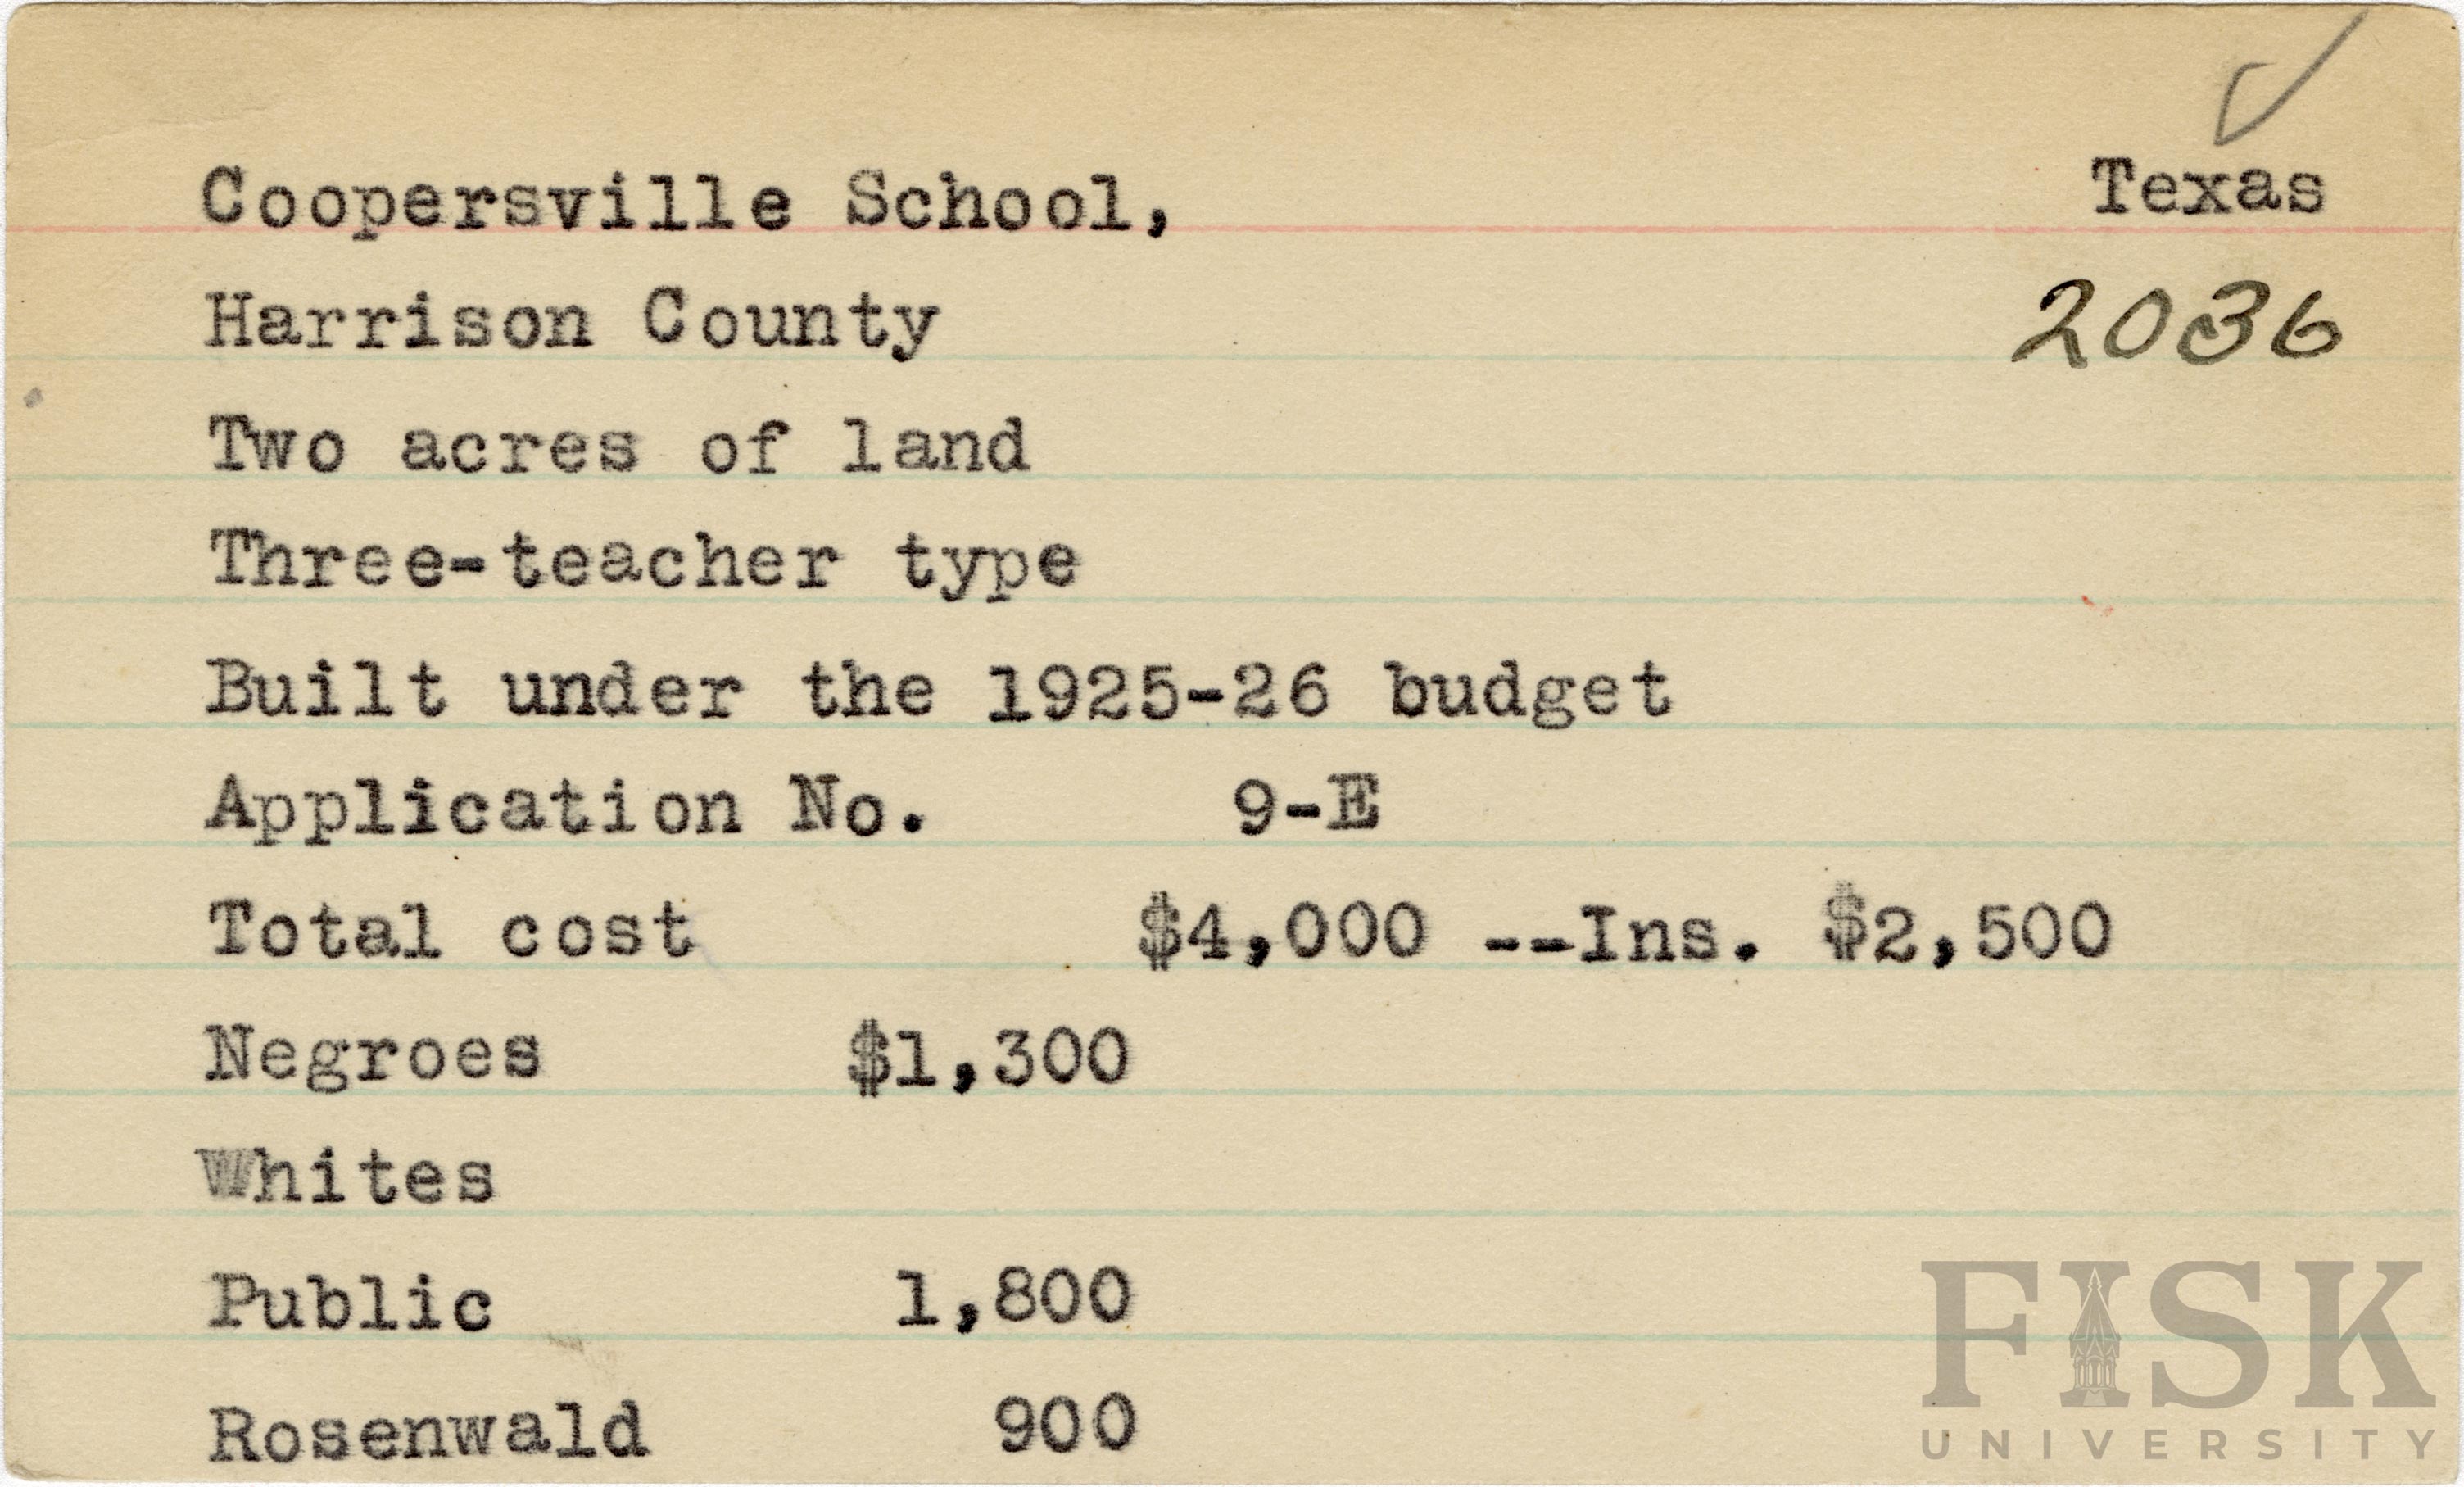 Coopersville School, Texas
Harrison County 2036
Two acres of land
Three-teacher type
Built under the 1925-26 budget
Application No. 9-E
Total cost $4,000 --Ins. $2,500
Negroes $1,300
Whites
Public 1,800
Rosenwald 900
FISK
UNIVERSITY